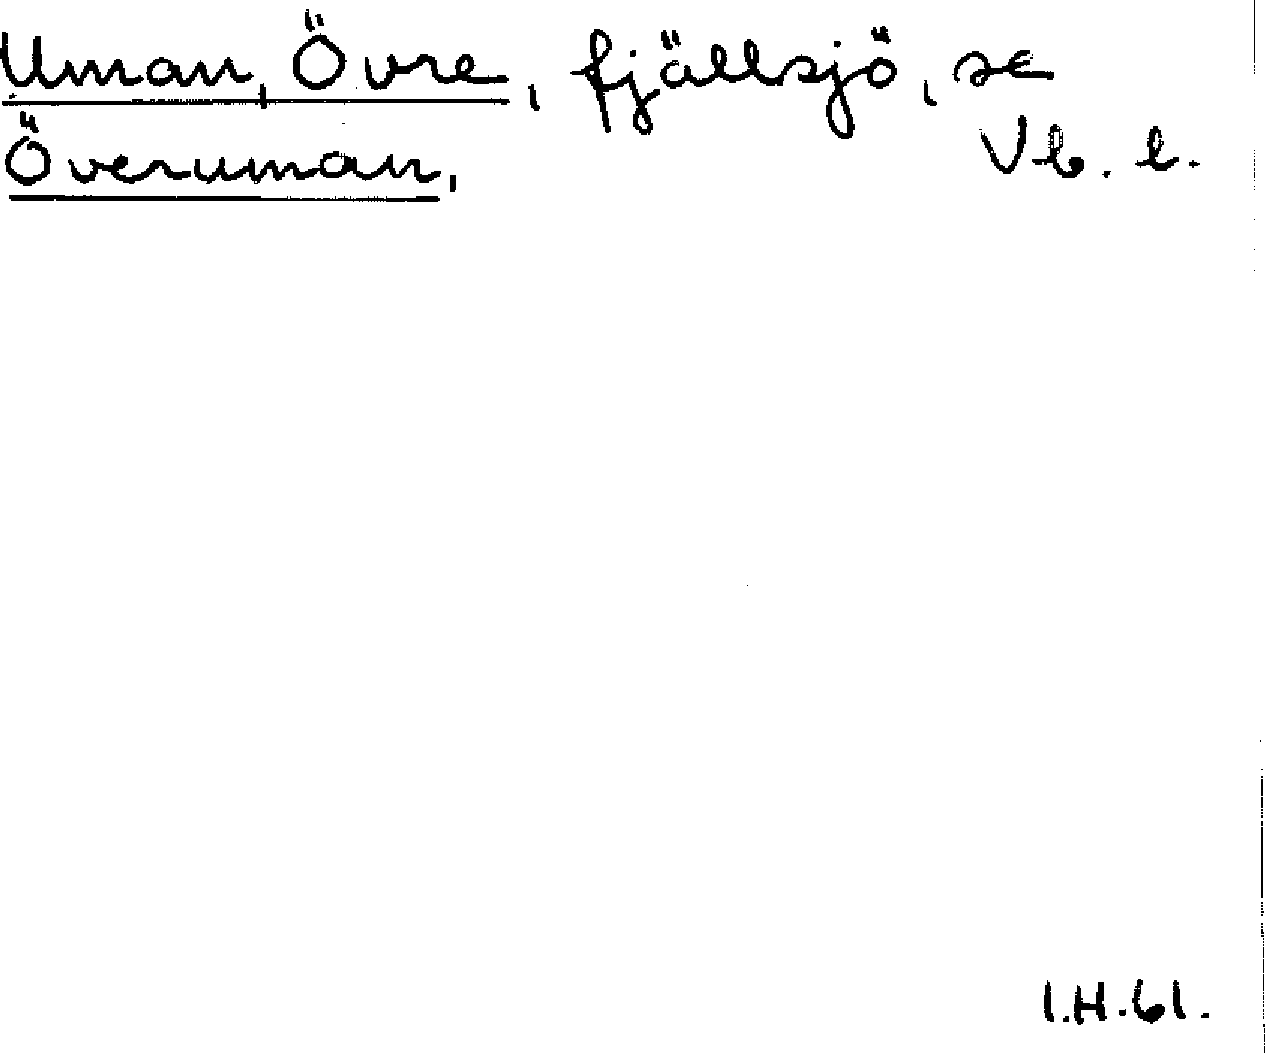 Uman, Övre, fjällsjö, se
Överuman, Vb. l.
I.H.61.